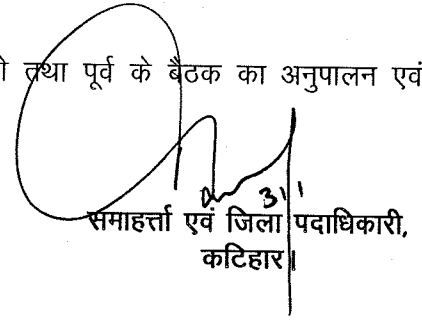 तथा पूर्व के बैठक का अनुपालन एवं
समाहर्त्ता एवं जिला पदाधिकारी,
कटिहार।